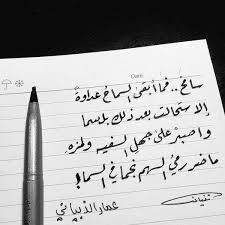 Date
سامِحْ .. فما أبقى السماحُ عداوةً
إلا استحالت بعد ذلك بلسما
واصبرْ على جهل السفيه ولمزه
ما ضر رميُ السهم نجمًا في السما!
عمار الذبياني